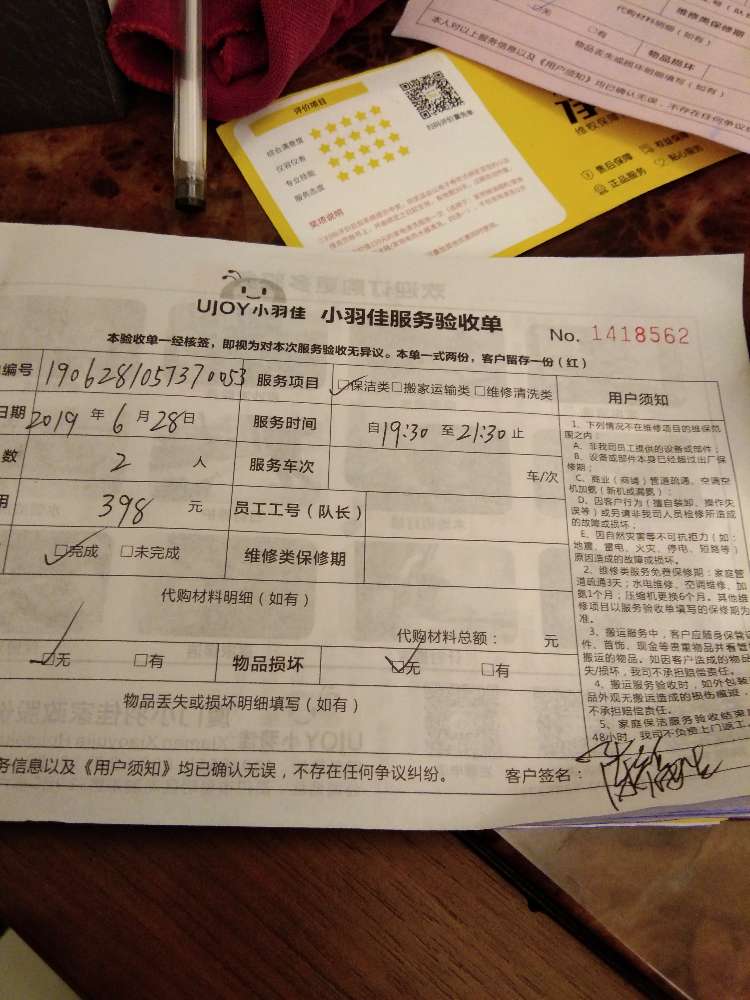 号（队长
代购材料明细（如有）
维修类保修期
无
有
物品损坏
物品丢失或损坏明细填写（如有）
本人对以上服务信息以及《用户须知》均已确认无误，不存在任何争议
评价项目
综合满意度
仪容仪表
专业技能
服务态度
扫码评价量亮单
奖项说明
维权保障
售后保障
权益保障
正品服务
贴心服务
欢迎订购更多服
UJOY小羽佳 小羽佳服务验收单
No. 1418562
本验收单一经核签，即视为对本次服务验收无异议。本单一式两份，客户留存一份（红）
编号 1906281057370053 服务项目 保洁类 搬家运输类 维修清洗类 用户须知
日期 2019 年 6 月 28 日 服务时间 自 19:30 至 21:30 止
数 2 人 服务车次 车/次
用 398 元 员工工号（队长）
完成 未完成 维修类保修期
代购材料明细（如有）
代购材料总额： 元
无 有 物品损坏 无 有
物品丢失或损坏明细填写（如有）
务信息以及《用户须知》均已确认无误，不存在任何争议纠纷。 客户签名：
1、下列情况不在维修项目的维保范
围之内：
A、非我司员工提供的设备或部件；
B、设备或部件本身已经超过出厂保
修期；
C、商业（商铺）管道疏通、空调空
机加氨（新机或漏氨）；
D、因客户行为（擅自装卸、操作失
误等）或另请非我司人员检修所造成
的故障或损坏；
E、因自然灾害等不可抗拒力（如：
地震、雷电、火灾、停电、短路等）
原因造成的故障或损坏。
2、维修类服务免费保修期：家庭管
道疏通3天；水电维修、空调维修、加
氨1个月；压缩机更换6个月。其他维
修项目以服务验收单填写的保修期为
准。
3、搬运服务中，客户应随身保管证
件、首饰、现金等贵重物品并看管
搬运的物品。如因客户造成的物品
失/损坏，我司不承担赔偿责任。
4、搬运服务验收时，如外包装
品外观无搬运造成的损伤痕迹，
不承担赔偿责任。
5、家庭保洁服务验收结束后
48小时，我司不负责上门返工